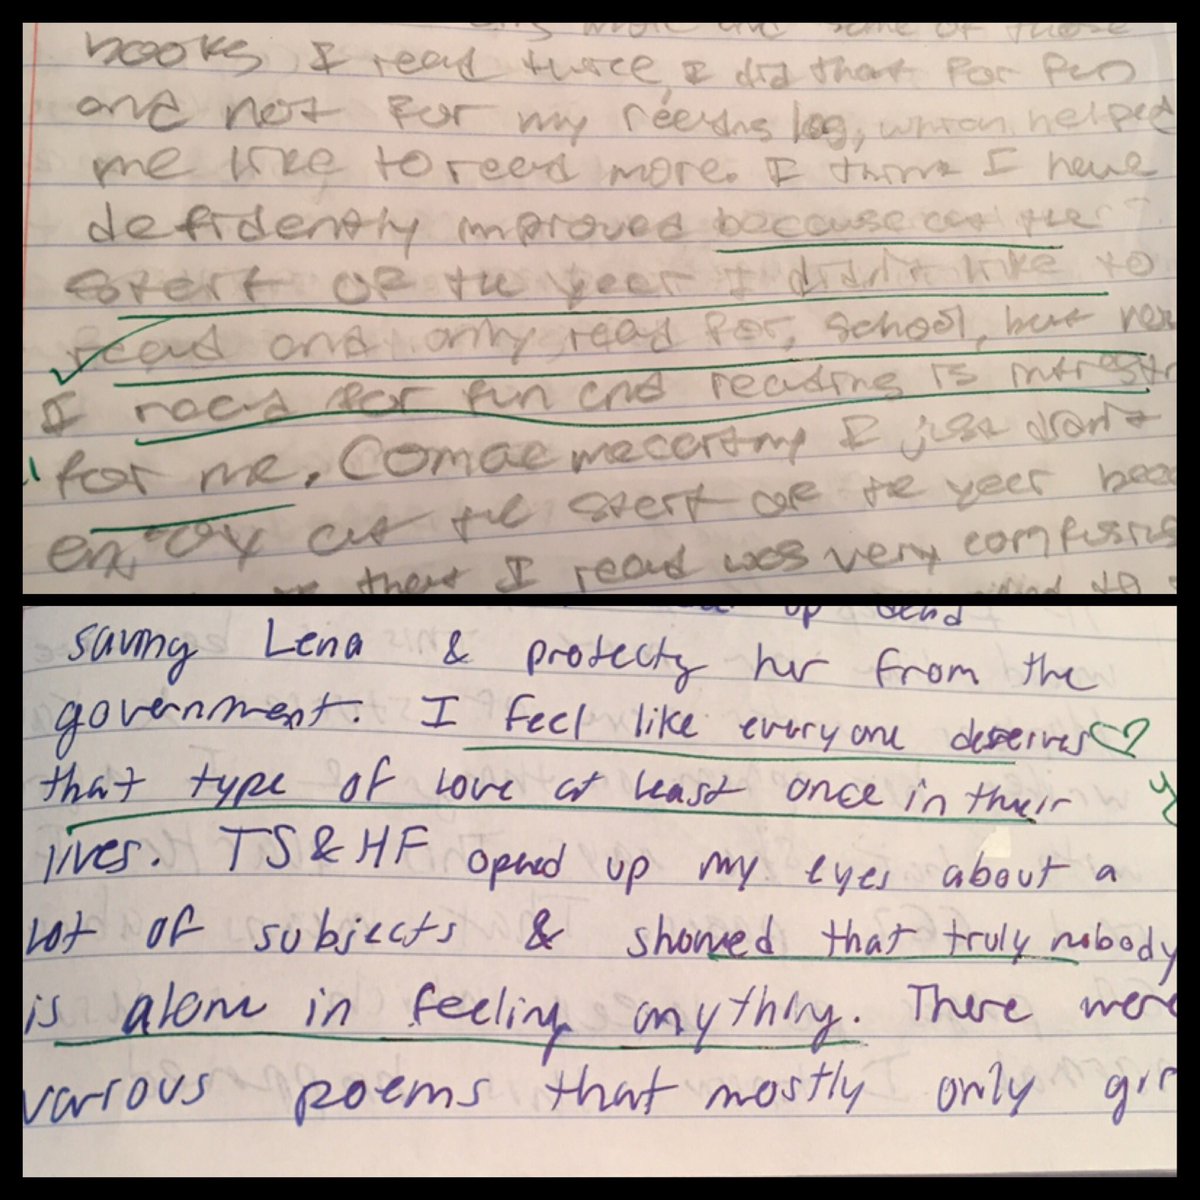 books I read twice, I did that for fun
and not for my reeding log, which helped
me like to reed more. I think I have
defidently improved because at the
start of the year I didn't like to
read and only read for, school, but now
I read for fun and reading is intrestn
for me. Comac mccartny I just didn't
enjoy at the start of the year beca
that I read was very confusing
up
saving Lena & protecty her from the
government. I feel like everyone deserves
that type of love at least once in their
lives. TS & HF opned up my eyes about a
lot of subjects & showed that truly nobody
is alone in feeling anything. There were
various poems that mostly only gir